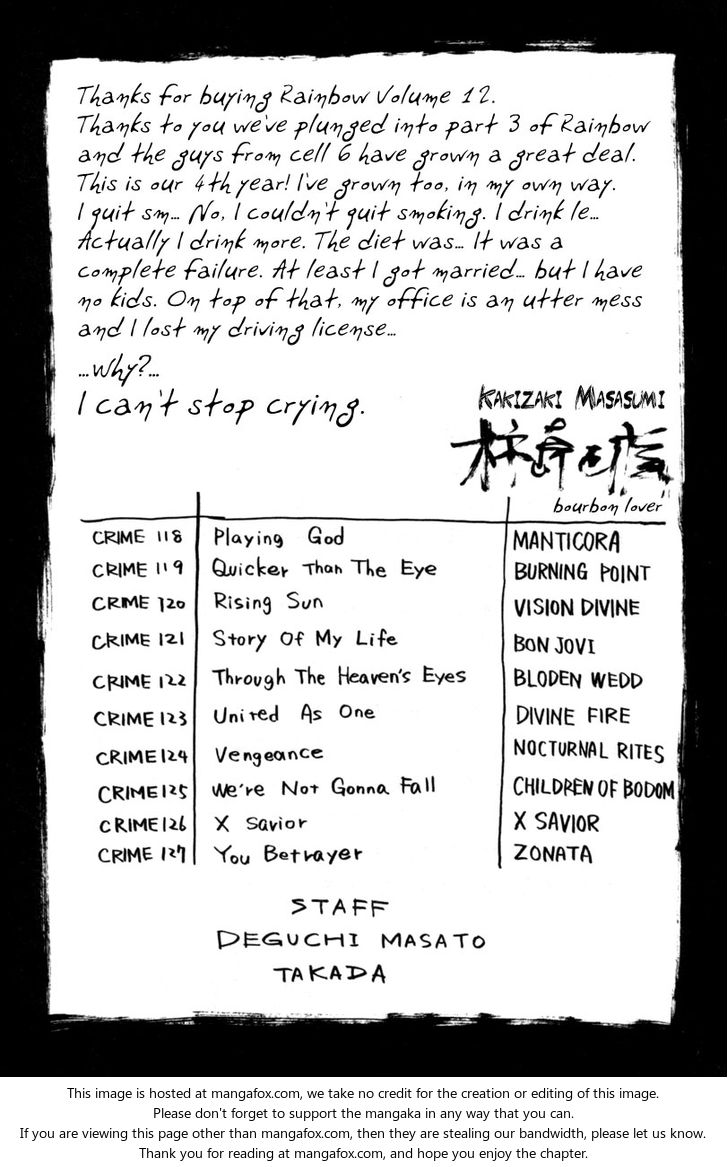 Thanks for buying Rainbow Volume 12.
Thanks to you we've plunged into part 3 of Rainbow
and the guys from cell 6 have grown a great deal.
This is our 4th year! I've grown too, in my own way.
I quit sm... No, I couldn't quit smoking. I drink le...
Actually I drink more. The diet was... It was a
complete failure. At least I got married... but I have
no kids. On top of that, my office is an utter mess
and I lost my driving license...
...Why?...
I can't stop crying.
KAKIZAKI MASASUMI
柿崎正澄
bourbon lover
CRIME 118 Playing God MANTICORA
CRIME 119 Quicker Than The Eye BURNING POINT
CRIME 120 Rising Sun VISION DIVINE
CRIME 121 Story Of My Life BON JOVI
CRIME 122 Through The Heaven's Eyes BLODEN WEDD
CRIME 123 United As One DIVINE FIRE
CRIME 124 Vengeance NOCTURNAL RITES
CRIME 125 We're Not Gonna Fall CHILDREN OF BODOM
CRIME 126 X Savior X SAVIOR
CRIME 127 You Betrayer ZONATA
STAFF
DEGUCHI MASATO
TAKADA
This image is hosted at mangafox.com, we take no credit for the creation or editing of this image.
Please don't forget to support the mangaka in any way that you can.
If you are viewing this page other than mangafox.com, then they are stealing our bandwidth, please let us know.
Thank you for reading at mangafox.com, and hope you enjoy the chapter.